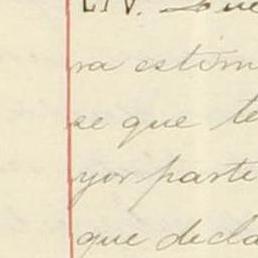 LIV. Que
ra estim
se que te
yor parte
que decla